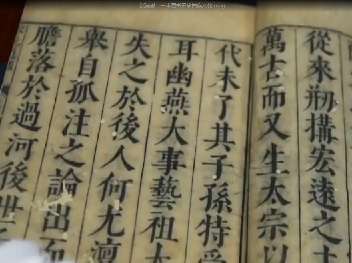 從來刱搆宏遠之
萬古而又生太宗以
代未了其子孫特
耳幽燕大事藝祖
失之於後人何尤
衆自孤注之論出
膽落於過河後世